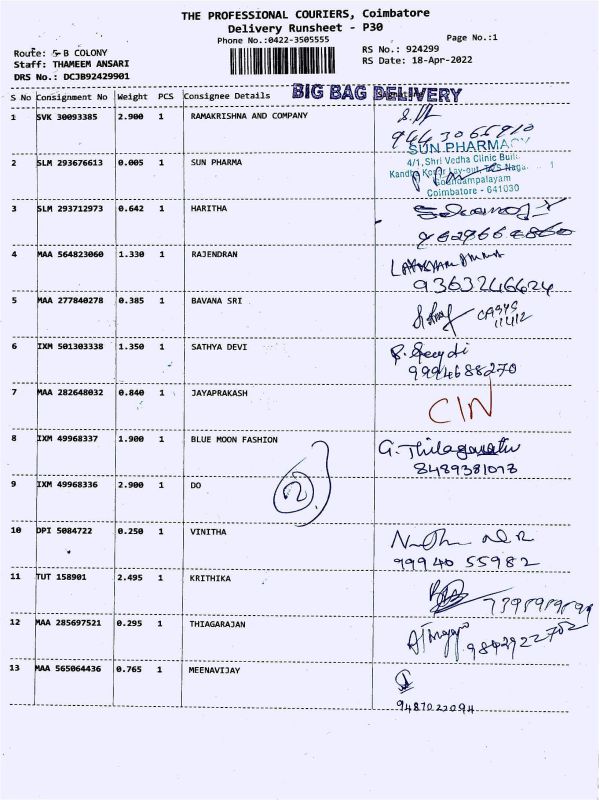 THE PROFESSIONAL COURIERS, Coimbatore
Delivery Runsheet - P30
Phone No.:0422-3505555
Page No.:1
Route: 5-B COLONY
RS No.: 924299
Staff: THAMEEM ANSARI
RS Date: 18-Apr-2022
DRS No.: DCJB92429901
BIG BAG DELIVERY
S No Consignment No Weight PCS Consignee Details
1 SVK 30093385 2.900 1 RAMAKRISHNA AND COMPANY
9443065910
SUN PHARMACY
2 SLM 293676613 0.005 1 SUN PHARMA
4/1, Shri Vedha Clinic
Coimbatore - 641030
3 SLM 293712973 0.642 1 HARITHA
4 MAA 564823060 1.330 1 RAJENDRAN
9363246624
5 MAA 277840278 0.385 1 BAVANA SRI
6 IXM 501303338 1.350 1 SATHYA DEVI
9994688270
7 MAA 282648032 0.840 1 JAYAPRAKASH
CIN
8 IXM 49968337 1.900 1 BLUE MOON FASHION
8489381073
9 IXM 49968336 2.900 1 DO
2
10 DPI 5084722 0.250 1 VINITHA
99940 55982
11 TUT 158901 2.495 1 KRITHIKA
12 MAA 285697521 0.295 1 THIAGARAJAN
9842922702
13 MAA 565064436 0.765 1 MEENAVIJAY
9487022094